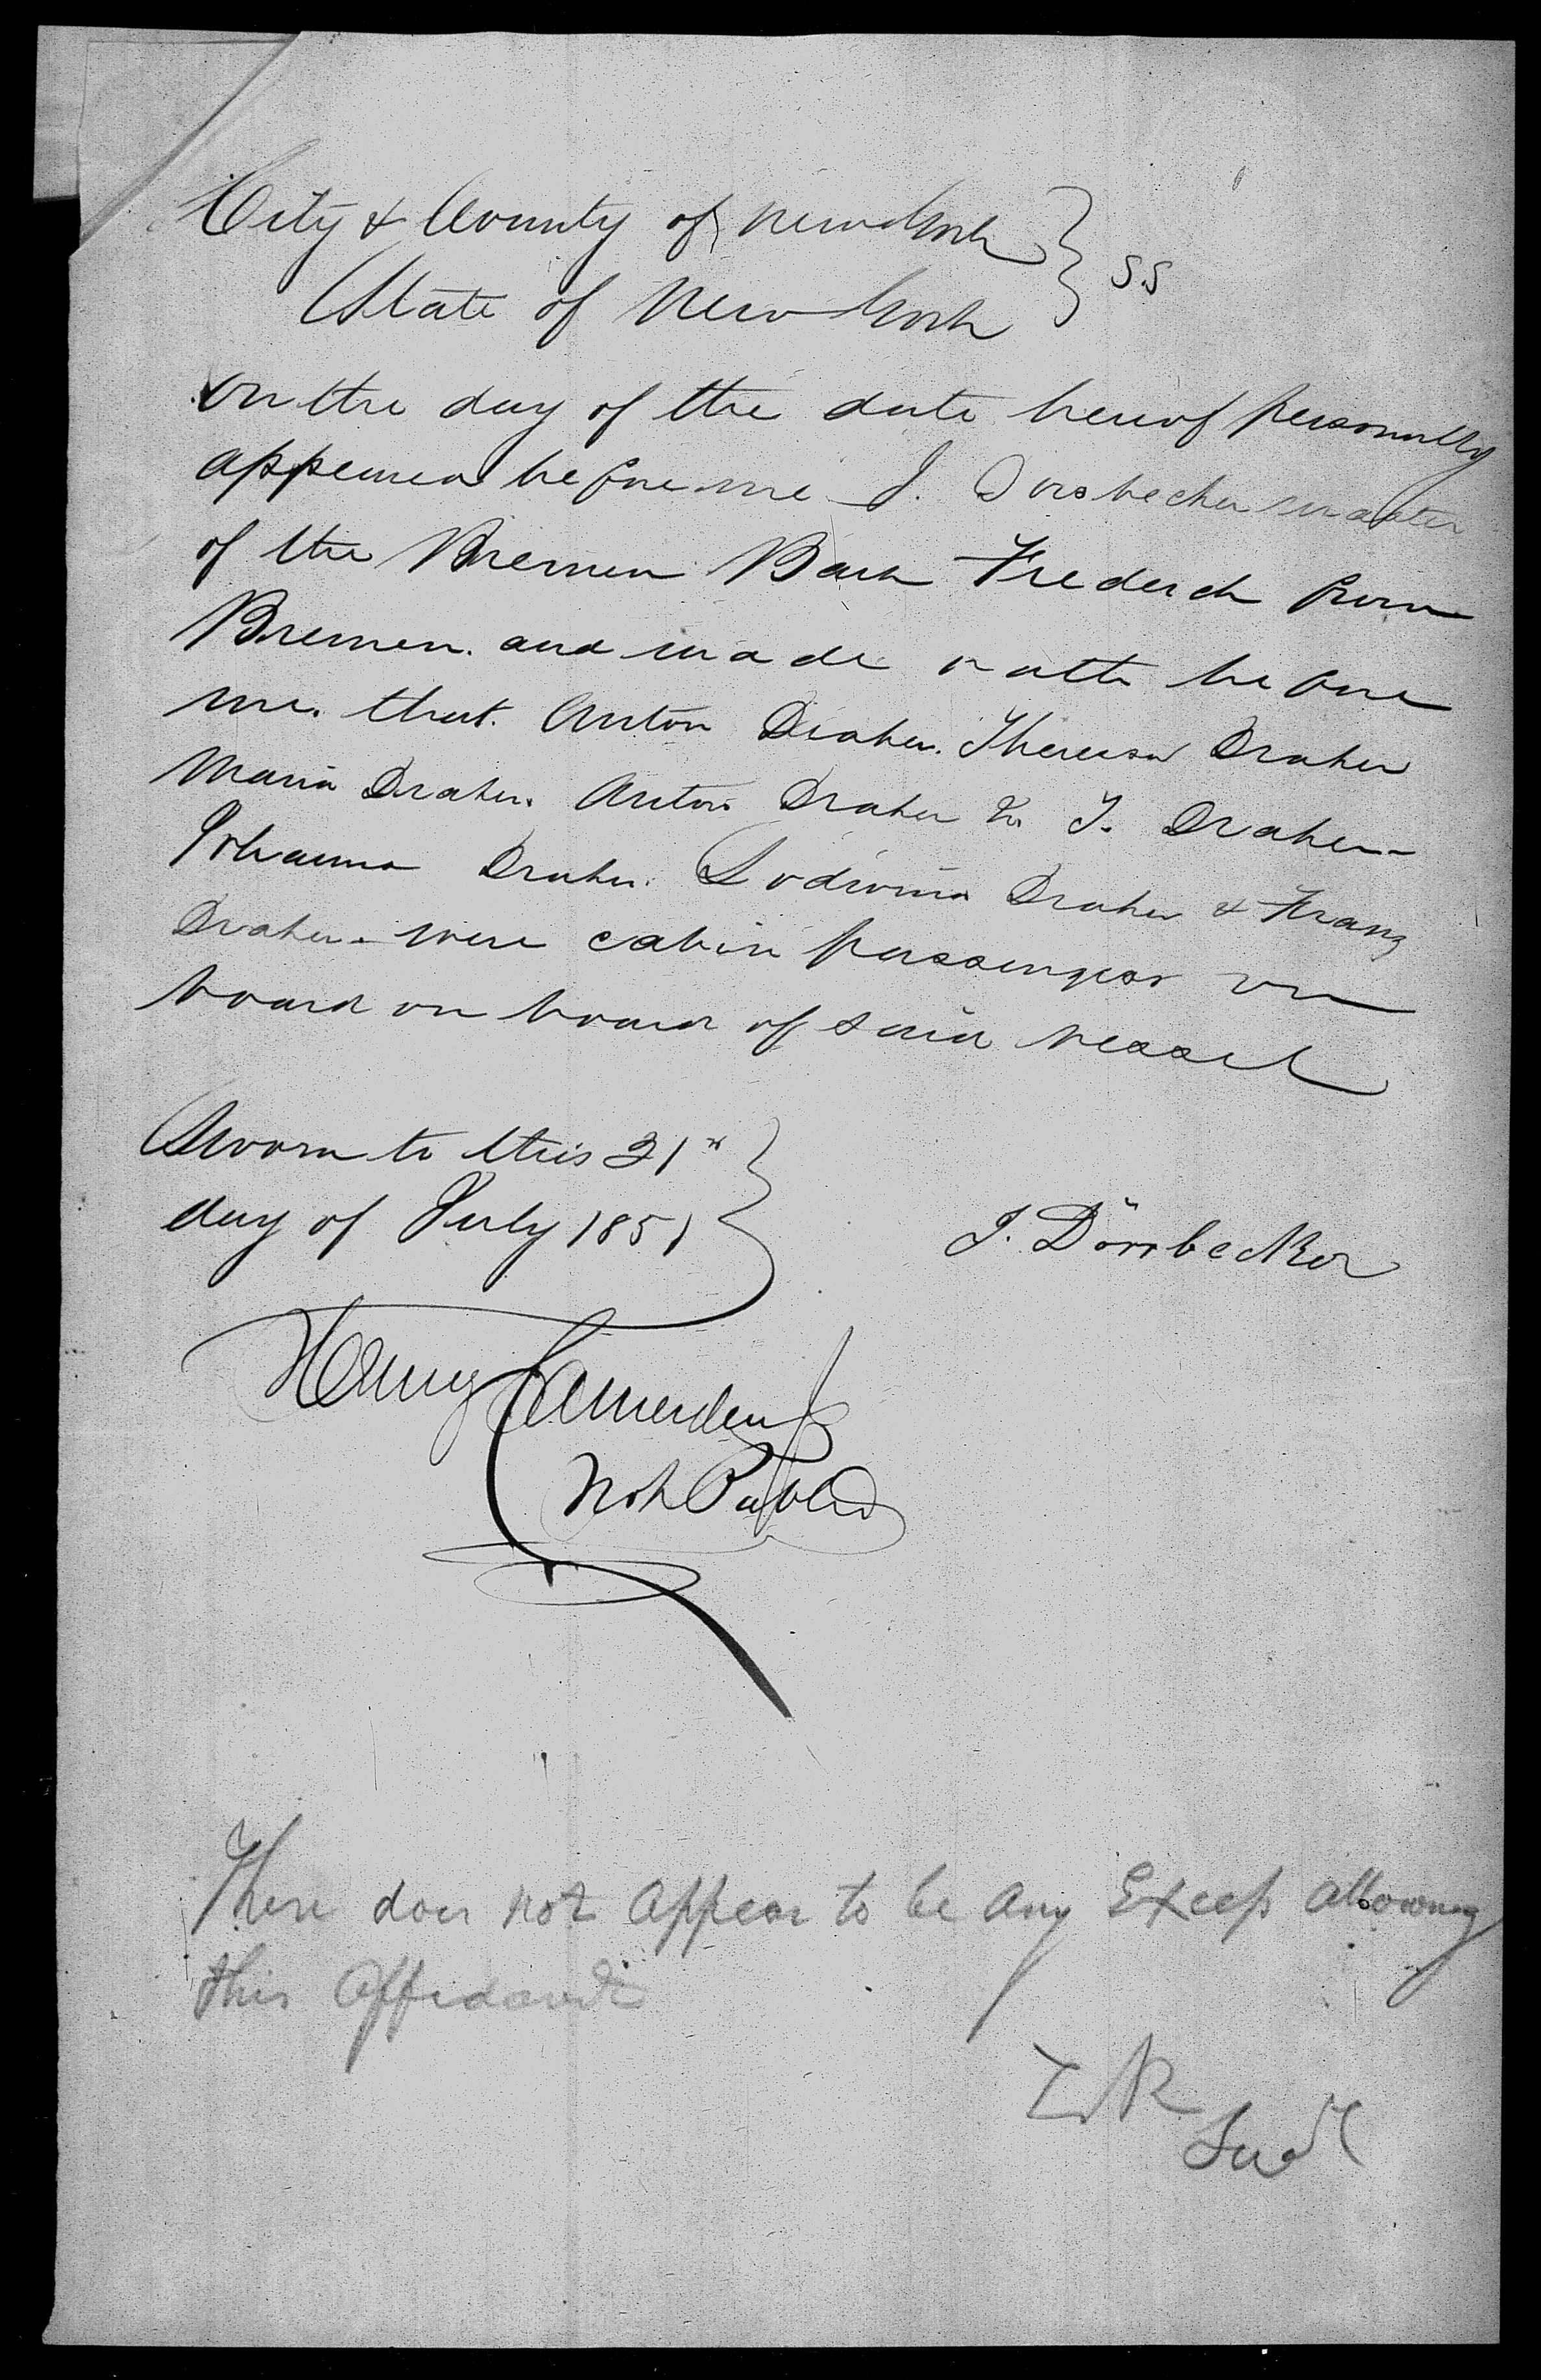 City & County of New York } S.S
State of New York
On the day of the date hereof personally
appeared before me J. Dorsbecher master
of the Bremen Bark Frederich from
Bremen. and made oath before
me. that. Anton Draher. Theresa Draher
Maria Draher. Anton Draher Jr. Draher
Johanna Draher. Draher & Franz
Draher. were cabin passengers on
board on board of said vessel
Sworn to this 21st
day of July 1851
J. Dörrbecker
Henry
Not Public
There does not appear to be any Excess allowing
this Affidavit